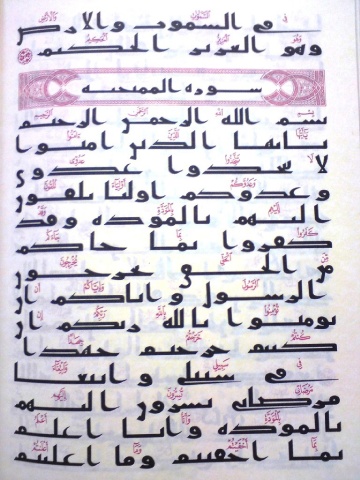 في السموت والارض
وهو العزيز الحكيم
سورة الممتحنة
بسم الله الرحمن الرحيم
يايها الذين امنوا
لا تتخذوا عدوي
وعدوكم اوليا تلقون
اليهم بالمودة وقد
كفروا بما جاكم
من الحق يخرجون
الرسول واياكم ان
تومنوا بالله ربكم ان
كنتم خرجتم جهدا
في سبيلي وابتغا
مرضاتي تسرون اليهم
بالمودة وانا اعلم
بما اخفيتم وما اعلنتم